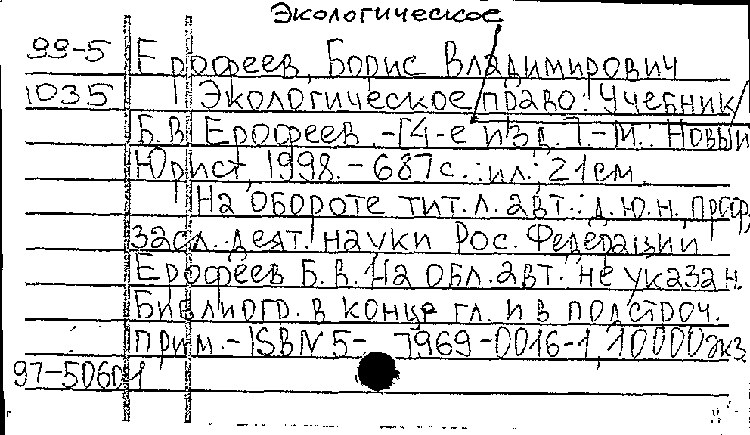 Экологическое
99-5 Ерофеев, Борис Владимирович
1035 Экологическое право: Учебник /
Б.В. Ерофеев. -[4-е изд.]. - М.: Новый
Юрист, 1998. - 687 с.: ил.; 21 см
На обороте тит. л. авт.: д.ю.н., проф.,
засл. деят. науки Рос. Федерации
Ерофеев Б.В. На обл. авт. не указан.
Библиогр. в конце гл. и в подстроч.
прим. - ISBN 5- 7969-0016-1, 10000 экз.